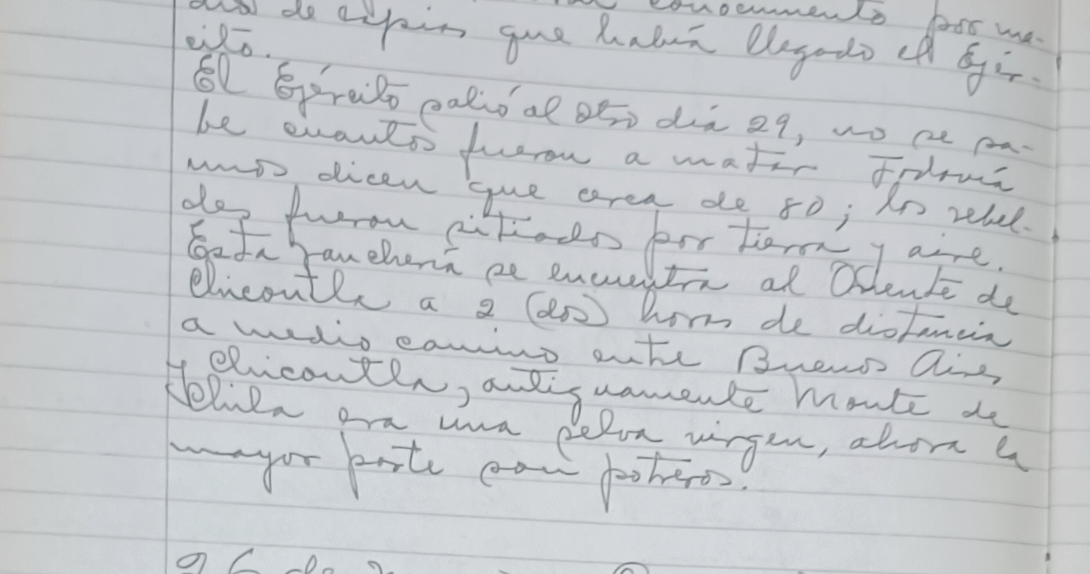 de espías que había llegado el Ejér-
cito.
El Ejército salió al otro día 29, no se sa-
be cuantos fueron a matar Todavía
unos dicen que cerca de 80; los rebel-
des fueron sitiados por tierra y aire.
Esta ranchería se encuentra al Oriente de
Chicontla a 2 (dos) horas de distancia
a medio camino entre Buenos Aires
y Chicontla, antiguamente Monte de
Chila era una selva virgen, ahora la
mayor parte son potreros.
26 de